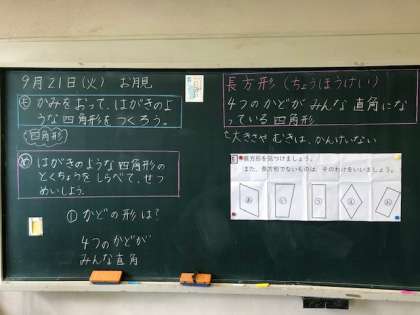 9月21日(火) お月見
も かみをおって、はがきのよ
うな四角形をつくろう。
四角形
め はがきのような四角形の
とくちょうをしらべて、せつ
めいしよう。
① かどの形は?
4つのかどが
みんな直角
長方形(ちょうほうけい)
4つのかどがみんな直角にな
っている四角形
大きさやむきは、かんけいない
長方形を見つけましょう。
また、長方形でないものは、そのわけをいいましょう。